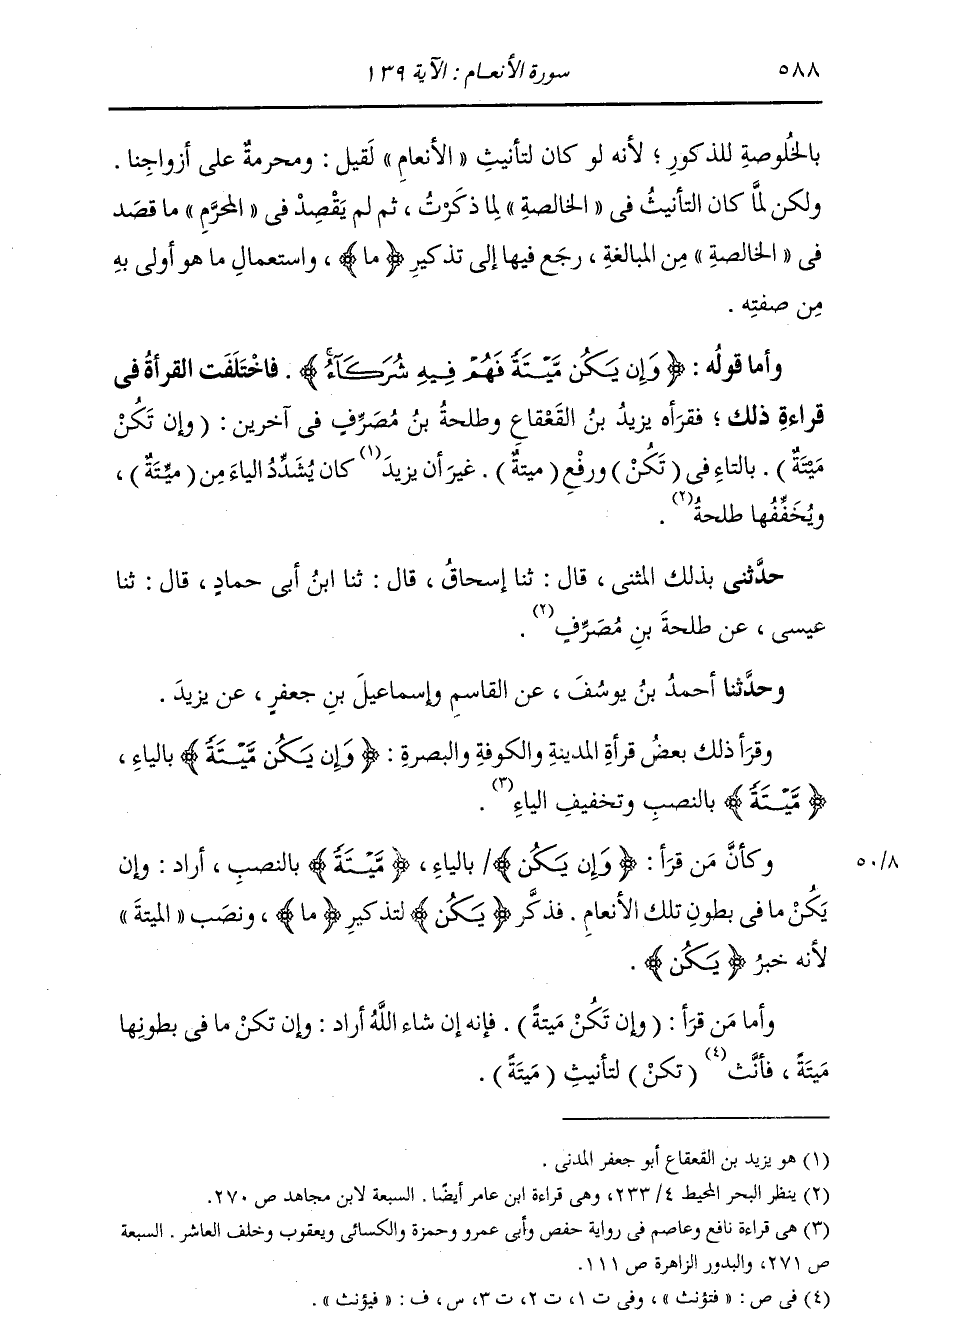 ٥٨٨ سورة الأنعام : الآية ١٣٩
بالخُلوصةِ للذكورِ ؛ لأنه لو كان لتأنيثِ « الأنعامِ » لَقيل : ومحرمةٌ على أزواجِنا .
ولكن لمَّا كان التأنيثُ فى « الخالصةِ » لِما ذكَرْتُ ، ثم لم يَقْصِدْ فى « المحرَّمِ » ما قصَد
فى « الخالصةِ » مِن المبالغةِ ، رجَع فيها إلى تذكيرِ ﴿ ما ﴾ ، واستعمالِ ما هو أولى بهِ
مِن صفتِه .
وأما قولُه : ﴿ وَإِن يَكُن مَّيْتَةً فَهُمْ فِيهِ شُرَكَآءُ ۚ ﴾ . فاخْتَلَفَت القرأةُ فى
قراءةِ ذلك ؛ فقرَأه يزيدُ بنُ القَعْقاعِ وطلحةُ بنُ مُصَرِّفٍ فى آخرين : ( وإن تَكُنْ
مَيْتَةٌ ) . بالتاءِ فى ( تَكُنْ ) ورفْعِ ( ميتةٌ ) . غيرَ أن يزيدَ(١) كان يُشَدِّدُ الياءَ مِن ( مَيِّتَةٌ ) ،
ويُخَفِّفُها طلحةُ(٢) .
حدَّثنى بذلك المثنى ، قال : ثنا إسحاقُ ، قال : ثنا ابنُ أبى حمادٍ ، قال : ثنا
عيسى ، عن طلحةَ بنِ مُصَرِّفٍ(٢) .
وحدَّثنا أحمدُ بنُ يوسُفَ ، عن القاسمِ وإسماعيلَ بنِ جعفرٍ ، عن يزيدَ .
وقرَأ ذلك بعضُ قرأةِ المدينةِ والكوفةِ والبصرةِ : ﴿ وَإِن يَكُن مَّيْتَةً ﴾ بالياءِ ،
﴿ مَّيْتَةً ﴾ بالنصبِ وتخفيفِ الياءِ(٣) .
٥٠/٨ وكأنَّ مَن قرَأ : ﴿ وَإِن يَكُن ﴾/ بالياءِ ، ﴿ مَّيْتَةً ﴾ بالنصبِ ، أراد : وإن
يَكُنْ ما فى بطونِ تلك الأنعامِ . فذكَّر ﴿ يَكُن ﴾ لتذكيرِ ﴿ ما ﴾ ، ونصَب « الميتةَ »
لأنه خبرُ ﴿ يَكُن ﴾ .
وأما مَن قرَأ : ( وإن تَكُنْ مَيتةً ) . فإنه إن شاء اللَّهُ أراد : وإن تكنْ ما فى بطونِها
مَيتَةً ، فأنَّث(٤) ( تكنْ ) لتأنيثِ ( مَيتَةً ) .
(١) هو يزيد بن القعقاع أبو جعفر المدنى .
(٢) ينظر البحر المحيط ٤/ ٢٣٣، وهى قراءة ابن عامر أيضًا . السبعة لابن مجاهد ص ٢٧٠.
(٣) هى قراءة نافع وعاصم فى رواية حفص وأبى عمرو وحمزة والكسائى ويعقوب وخلف العاشر . السبعة
ص ٢٧١، والبدور الزاهرة ص ١١١.
(٤) فى ص : « فتؤنث » ، وفى ت ١، ت ٢، ت ٣، س، ف : « فيؤنث » .